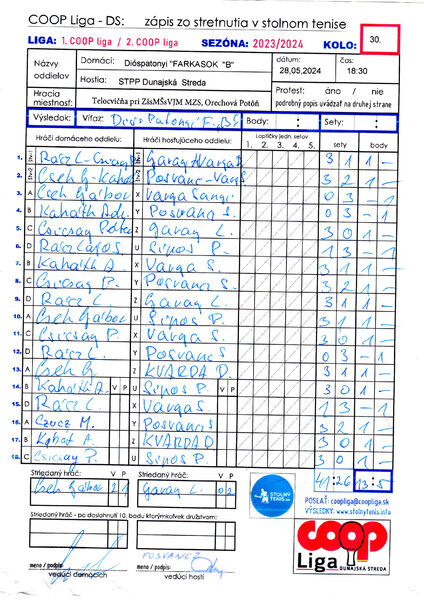 COOP Liga - DS: zápis zo stretnutia v stolnom tenise
LIGA: 1. COOP liga / 2. COOP liga SEZÓNA: 2023/2024 KOLO: 30.
Názvy oddielov Domáci: Dióspatonyi "FARKASOK "B" dátum: 28,05,2024 čas: 18:30
Hostia: STPP Dunajská Streda
Hracia miestnosť: Telocvičňa pri ZšsMŠsVJM MZS, Orechová Potôň
Protest: áno / nie
podrobný popis uvádzať na druhej strane
Výsledok: Víťaz: Body: : Sety: :
Hráči domáceho oddielu: Hráči hosťujúceho oddielu: Loptičky jedn. setov sety body
1. 2. 3. 4. 5.
1. Rácz L - Csicsay P Garay - Varga S 3 1 1 -
2. Cseh G - Posvanc - Varga S 3 2 1 -
3. A Cseh Gábor X Varga 0 3 - 1
4. B Y Posvanc S. 0 3 - 1
5. C Csicsay Péter Z Garay L. 3 0 1 -
6. D Rácz Lajos U Sipos P. 1 3 - 1
7. B X Varga S. 3 1 1 -
8. C Csicsay P. Y Posvanc S 3 2 1 -
9. D Rácz L. Z Garay L. 3 1 1 -
10. A Cseh Gábor U Sipos P. 3 1 1 -
11. C Csicsay P. X Varga S. 3 0 1 -
12. D Rácz L. Y Posvanc S 0 3 - 1
13. A Cseh G. Z KVARDA D. 3 1 1 -
14. B V P U Sipos P. V P 3 0 1 -
15. D Rácz L. X Varga S 1 3 - 1
16. A M. Y Posvanc S 3 2 1 -
17. B A. Z KVARDA D 3 0 1 -
18. C Csicsay P. U Sipos P. 3 0 1 -
Striedaný hráč: V P Striedaný hráč: V P 41:26 13:5
Cseh Gábor 2 1 Garay L. 0 2
STOLNÝ TENIS.sk
POSLAŤ: coopliga@coopliga.sk
VÝSLEDKY: www.stolnytenis.info
Striedaný hráč - po dosiahnutí 10. bodu ktorýmkoľvek družstvom:
coop
Liga DUNAJSKÁ STREDA
POSVANCZ
meno / podpis meno / podpis
vedúci domácich vedúci hostí